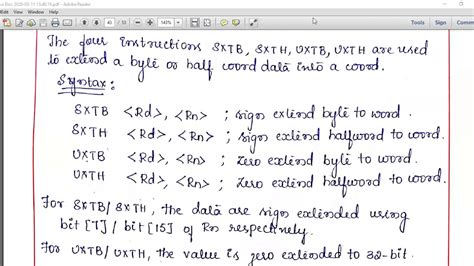 The four instructions SXTB, SXTH, UXTB, UXTH are used
to extend a byte or half word data into a word.
Syntax :
SXTB <Rd>, <Rn> ; sign extend byte to word.
SXTH <Rd>, <Rn> ; sign extend halfword to word.
UXTB <Rd>, <Rn> ; zero extend byte to word.
UXTH <Rd>, <Rn> ; zero extend halfword to word.
For SXTB/ SXTH, the data are sign extended using
bit [7] / bit [15] of Rn respectively.
For UXTB/ UXTH, the value is zero extended to 32-bit.